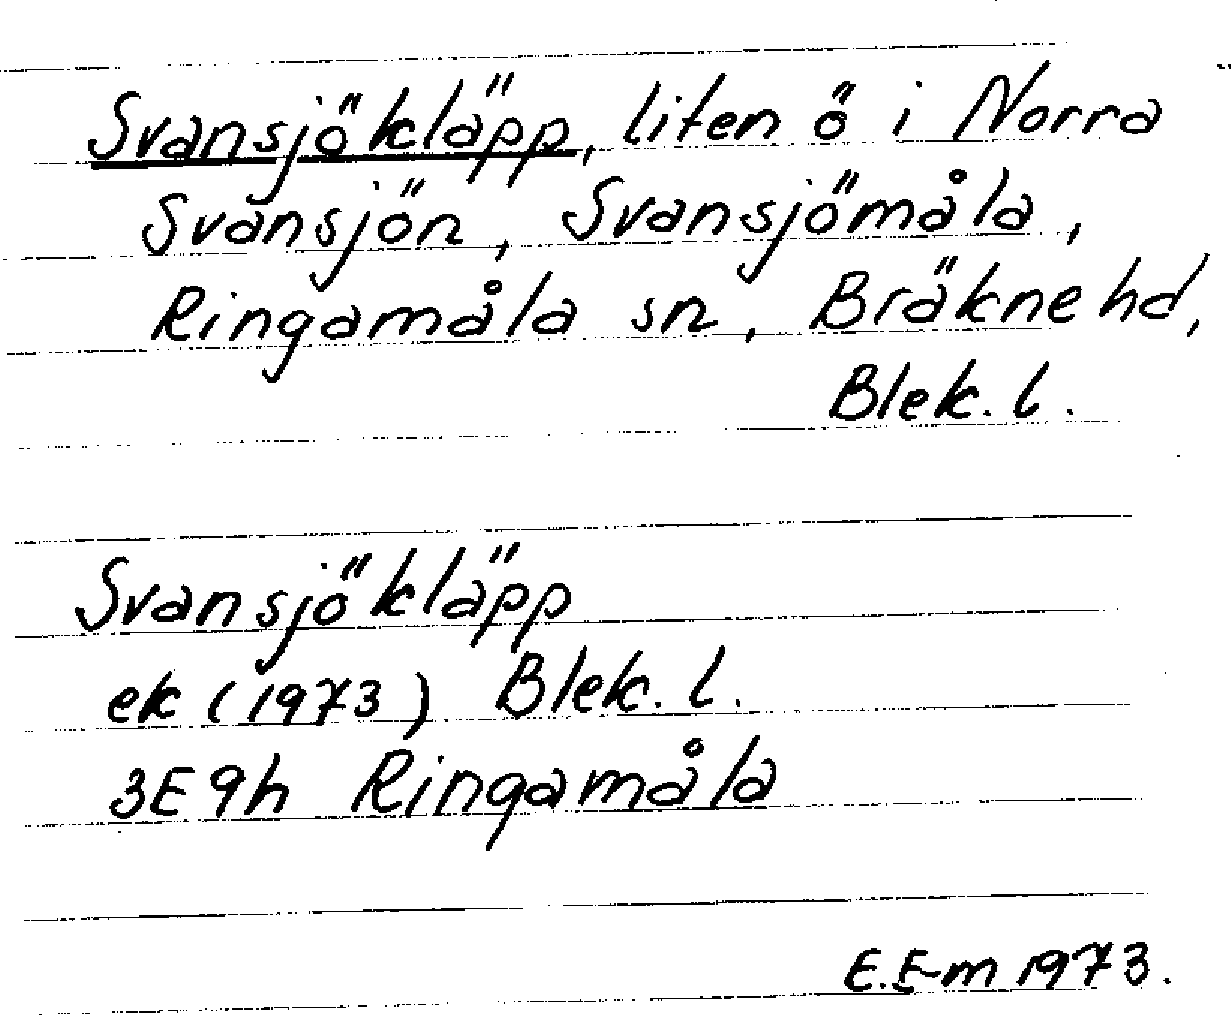 Svansjökläpp, liten ö i Norra
Svansjön, Svansjömåla,
Ringamåla sn, Bräkne hd,
Blek. l.
Svansjökläpp
ek (1973) Blek. l.
3E9h Ringamåla
E.E-m 1973.